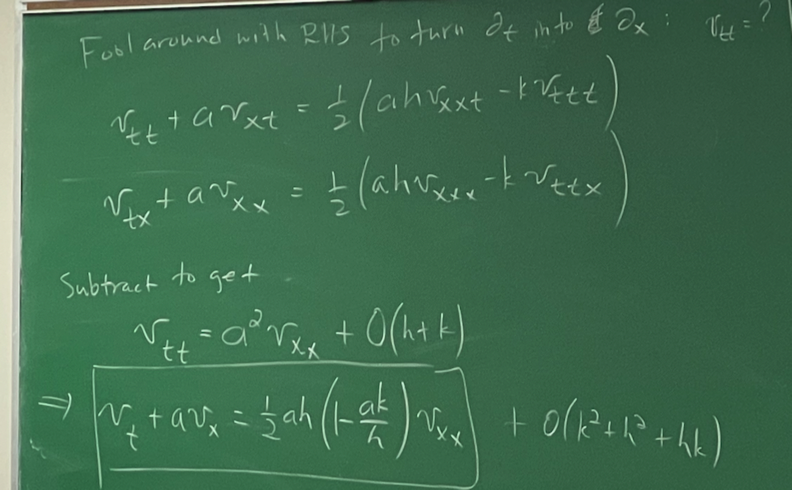 Fool around with RHS to turn ∂t into ∂x : v_tt = ?
v_tt + a v_xt = 1/2 (ah v_xxt - k v_ttt)
v_tx + a v_xx = 1/2 (ah v_xxx - k v_ttx)
Subtract to get
v_tt = a² v_xx + O(h+k)
⇒ v_t + a v_x = 1/2 ah (1 - ak/h) v_xx + O(k² + h² + hk)